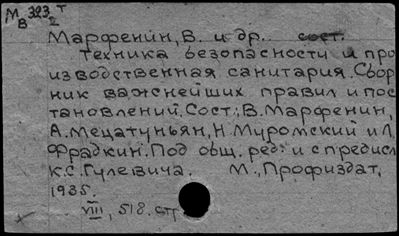 М 323 т
В 2
Марфенин, В. и др.. сост.
Техника безопасности и про
изводственная санитария. Сбор
ник важнейших правил и пос
тановлений. Сост.: В. Марфенин,
А. Мецатуньян, Н. Муромский и Л.
Фрадкин. Под общ. ред. и с предисл
К.С. Гулевича. М., Профиздат,
1935.
VIII, 518. стр.